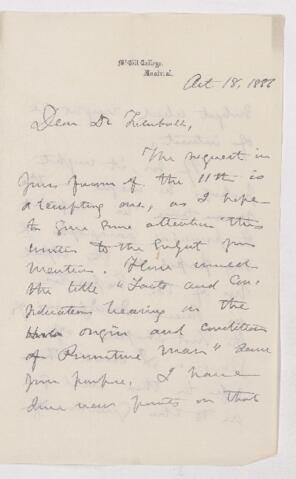 McGill College,
Montreal.
Oct 18, 1886
Dear Dr
The request in
your favour of the 11th is
a tempting one, as I hope
to give some attention this
winter to the subject you
mention. How would
the title "Facts and Con-
siderations bearing on the
origin and condition
of Primitive Man" serve
your purpose. I have
some new points on that